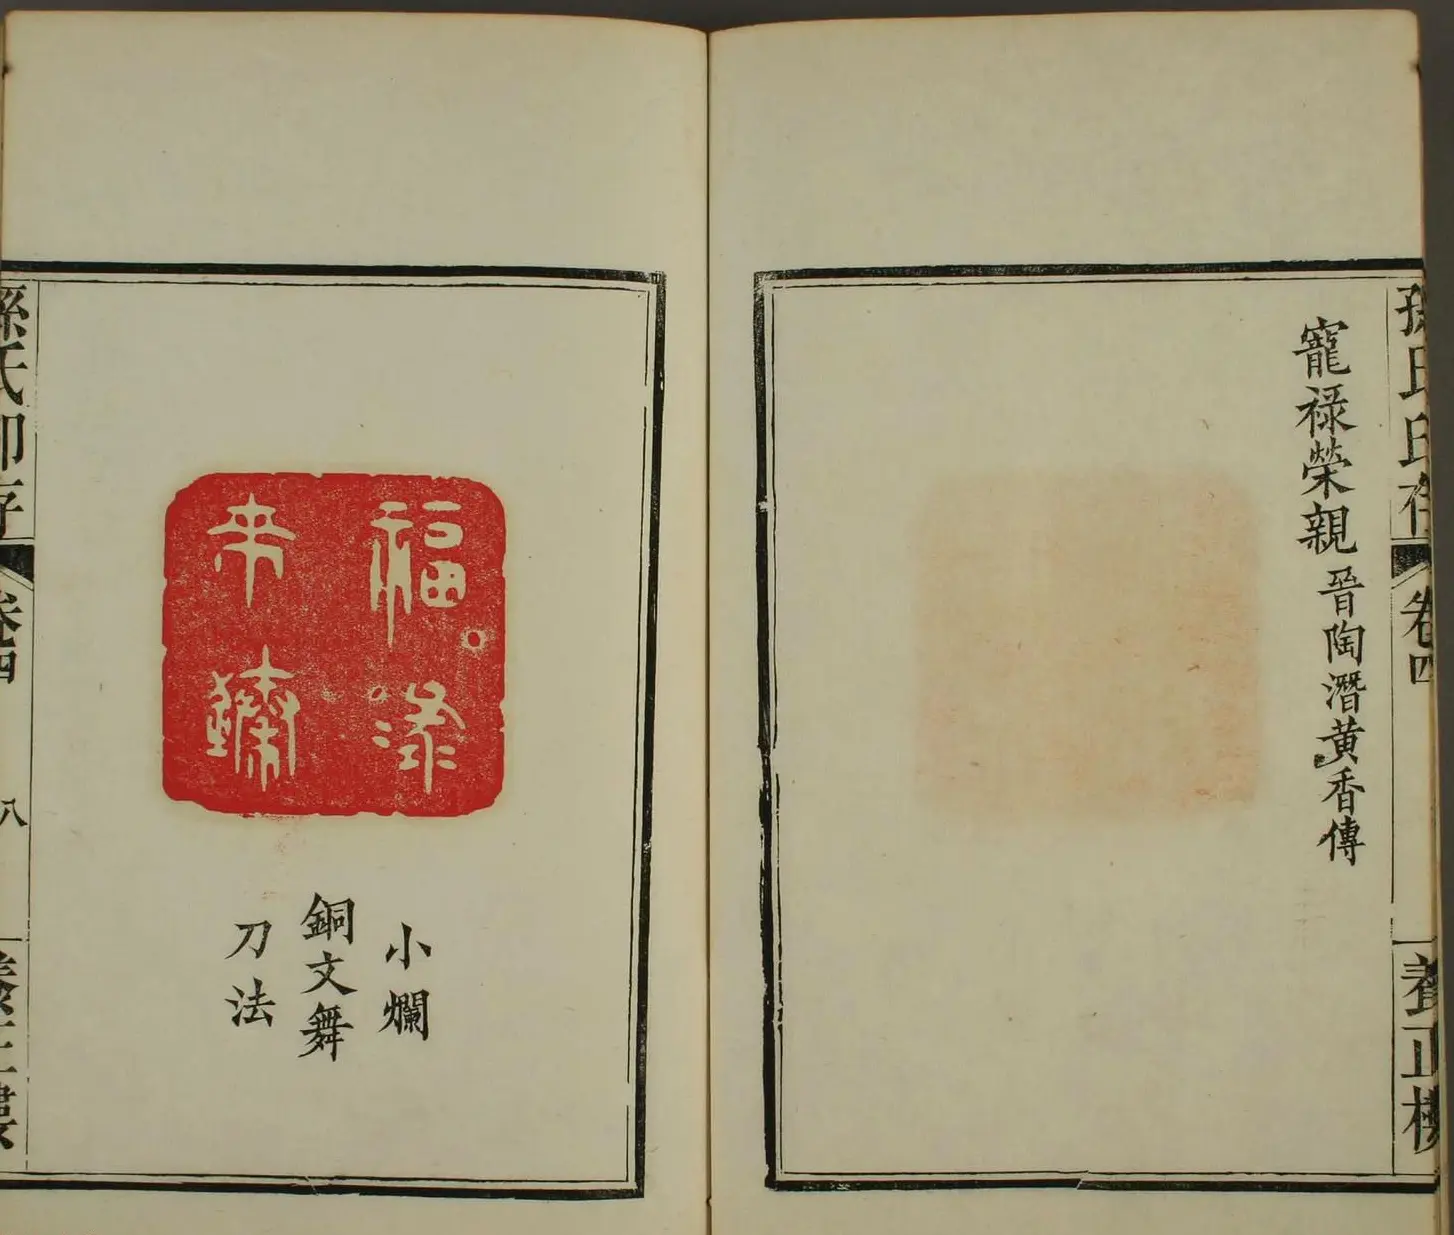 孫氏印存 卷四 養正樓
寵祿榮親 晉陶潛黃香傳
福祿
來臻
小爛
銅文舞
刀法
孫氏印存 卷四 八 養正樓